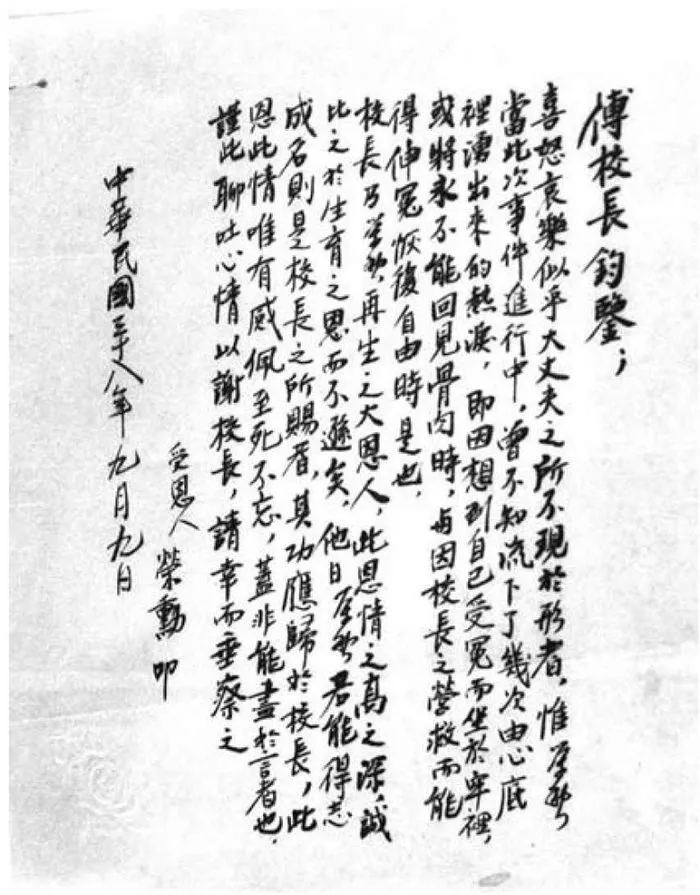 傅校長鈞鑒；
喜怒哀樂似乎大丈夫之所不現於形者，惟
當此次事件進行中，曾不知流下了幾次由心底
裡湧出來的熱淚，即因想到自己受冤而坐於牢裡，
或將永不能回見骨肉時，与因校長之營救而能
得伸冤恢復自由時是也，
校長乃再生之大恩人，此恩情之高之深誠
比之於生育之恩而不遜矣，他日若能得志
成名則是校長之所賜者，其功應歸於校長，此
恩此情唯有感佩至死不忘，蓋非能盡於言者也，
謹此聊吐心情以謝校長，請幸而垂察之
受恩人 榮勳 叩
中華民國三十八年九月九日